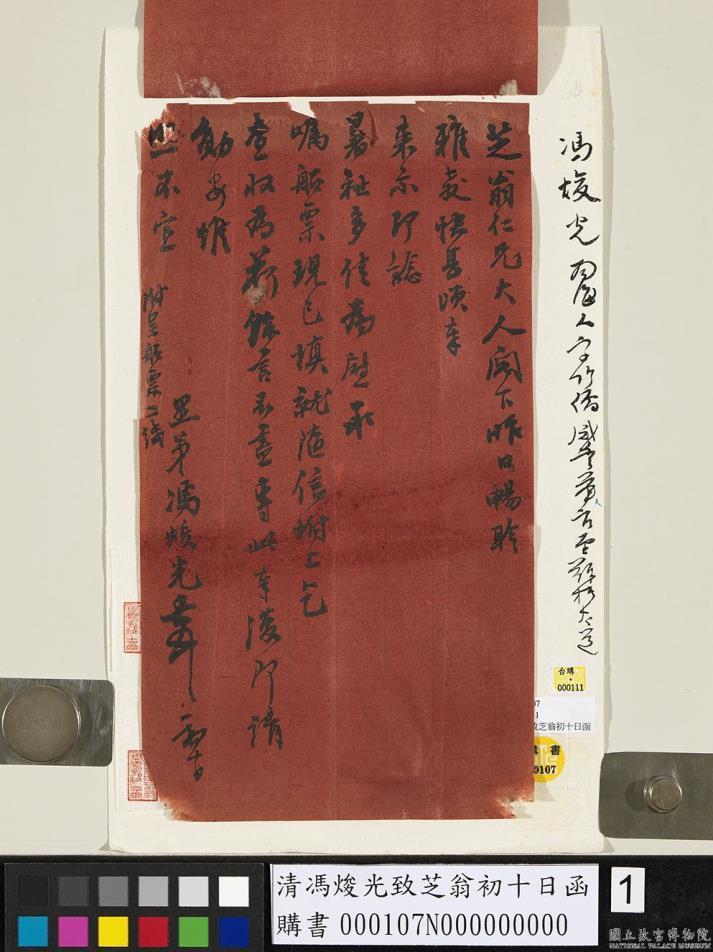 芝翁仁兄大人閣下昨日暢聆
雅教快甚頃奉
来示即諗
暑祉多佳為慰承
嘱船票現已填就隨信附上乞
查收為荷餘言不盡專此奉復即請
勛安惟
照不宣
附呈船票二張
愚弟馮焌光頓首
初十日
馮焌光
南海人字竹儒咸豐
台購
000111
07
1
致芝翁初十日函
購書
0107
清馮焌光致芝翁初十日函
購書 000107N000000000
1
國立故宮博物院
NATIONAL PALACE MUSEUM